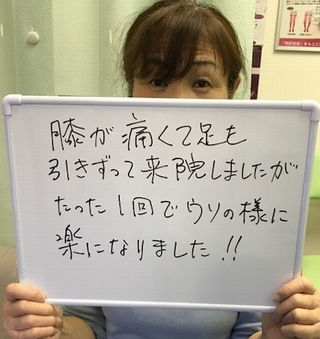 膝が痛くて足も
引きずって来院しましたが
たった1回でウソの様に
楽になりました!!